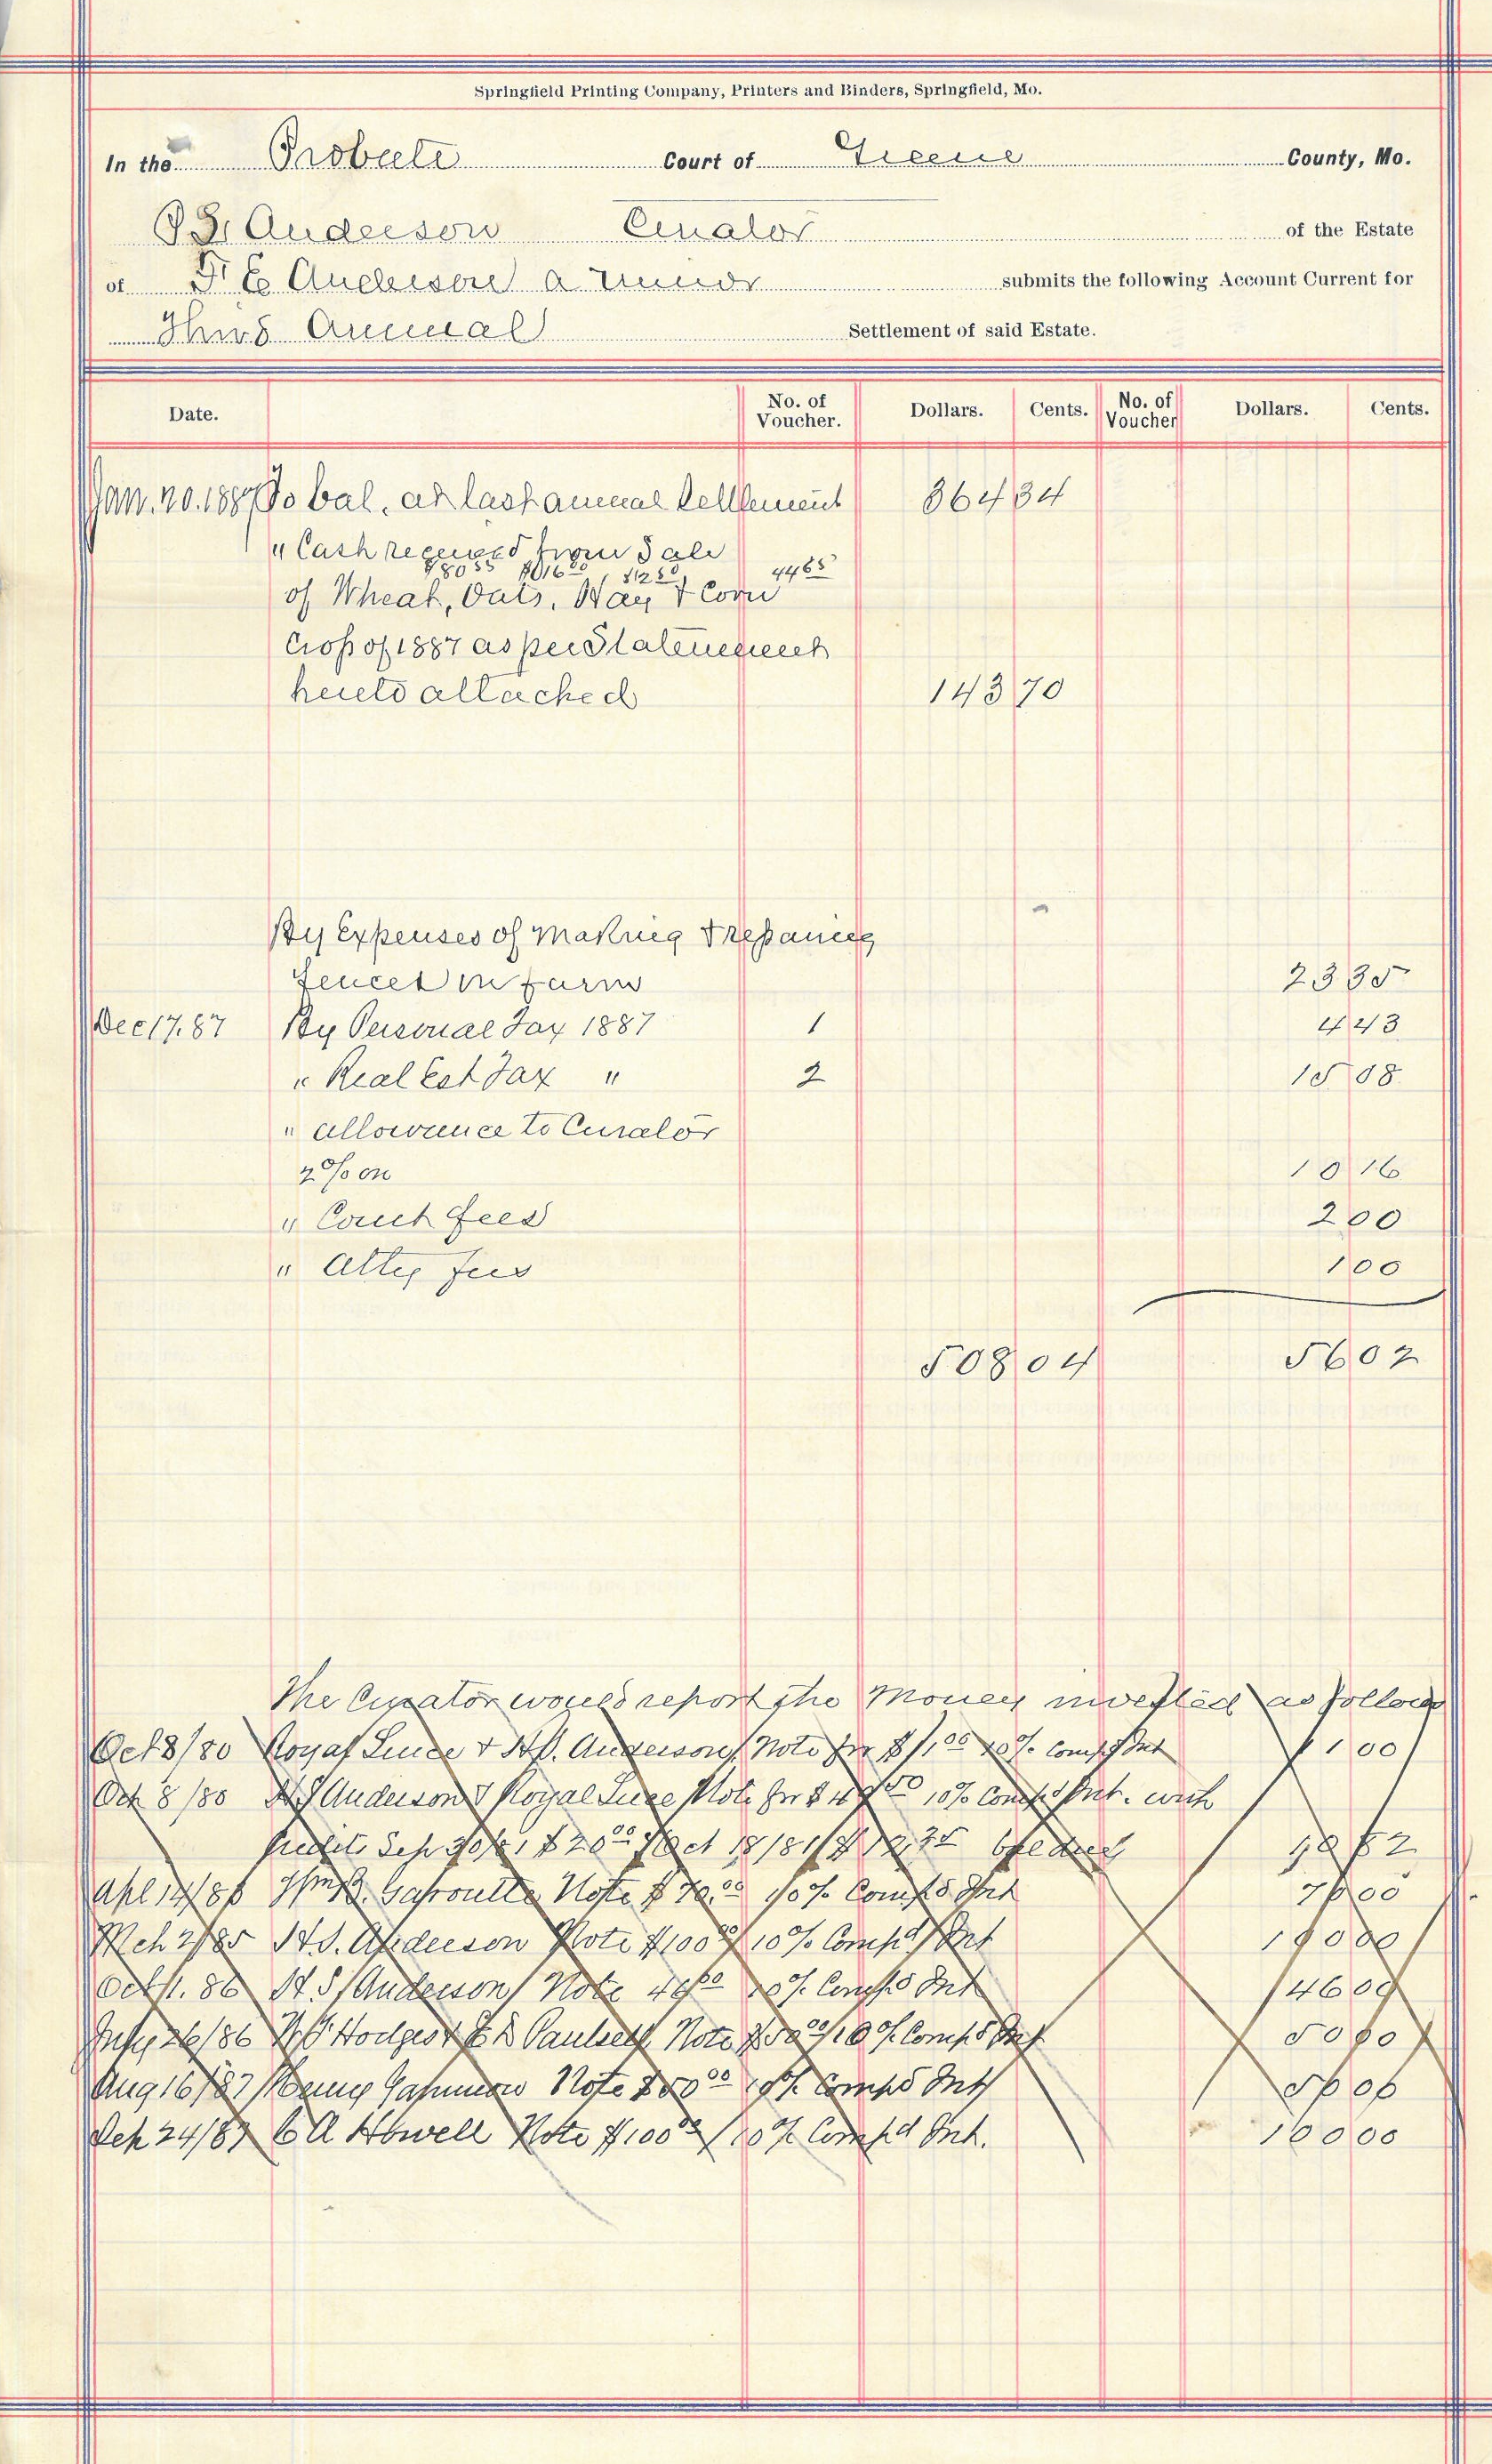 Springfield Printing Company, Printers and Binders, Springfield, Mo.
In the Probate Court of Greene County, Mo.
Anderson Curator of the Estate
of Anderson a minor submits the following Account Current for
Third Annual Settlement of said Estate.
Date. No. of Voucher. Dollars. Cents. No. of Voucher Dollars. Cents.
Jan. 20. 1887 To bal. at last annual Settlement 364 34
" Cash received from Sale
of Wheat, Oats, Hay & Corn 4465
Crop of 1887 as per Statement
hereto attached 143 70
By Expenses of Making & repairing
fences on farm 23 35
Dec 17. 87 By Personal Tax 1887 1 4 43
" Real Est Tax " 2 15 08
" allowance to Curator
2% on 10 16
" Court fees 2 00
" Atty fees 1 00
508 04 56 02
The Curator would report the Money invested as follows
Oct 8/80 Royal Luce & Anderson Note for 10% Comp'd Int
Oct 8/80 Anderson & Royal Luce Note for 10% Comp'd Int. with
Credits Sep 30/81 $20 00 & Oct 18/81
Apl 14/86 Gaproutte Note $70.00 10% Comp'd Int 70 00
Mch 2/85 H.S. Anderson Note $100 00 10% Comp'd Int 100 00
Oct 1. 86 H S Anderson Note 46 00 10% Comp'd Int 46 00
July 26/86 Hodges & Note $50 00 10% Comp'd Int 50 00
Aug 16/87 Note $50 00 10% Comp'd Int 50 00
Sep 24/87 C A Howell Note $100 00 10% Comp'd Int. 100 00